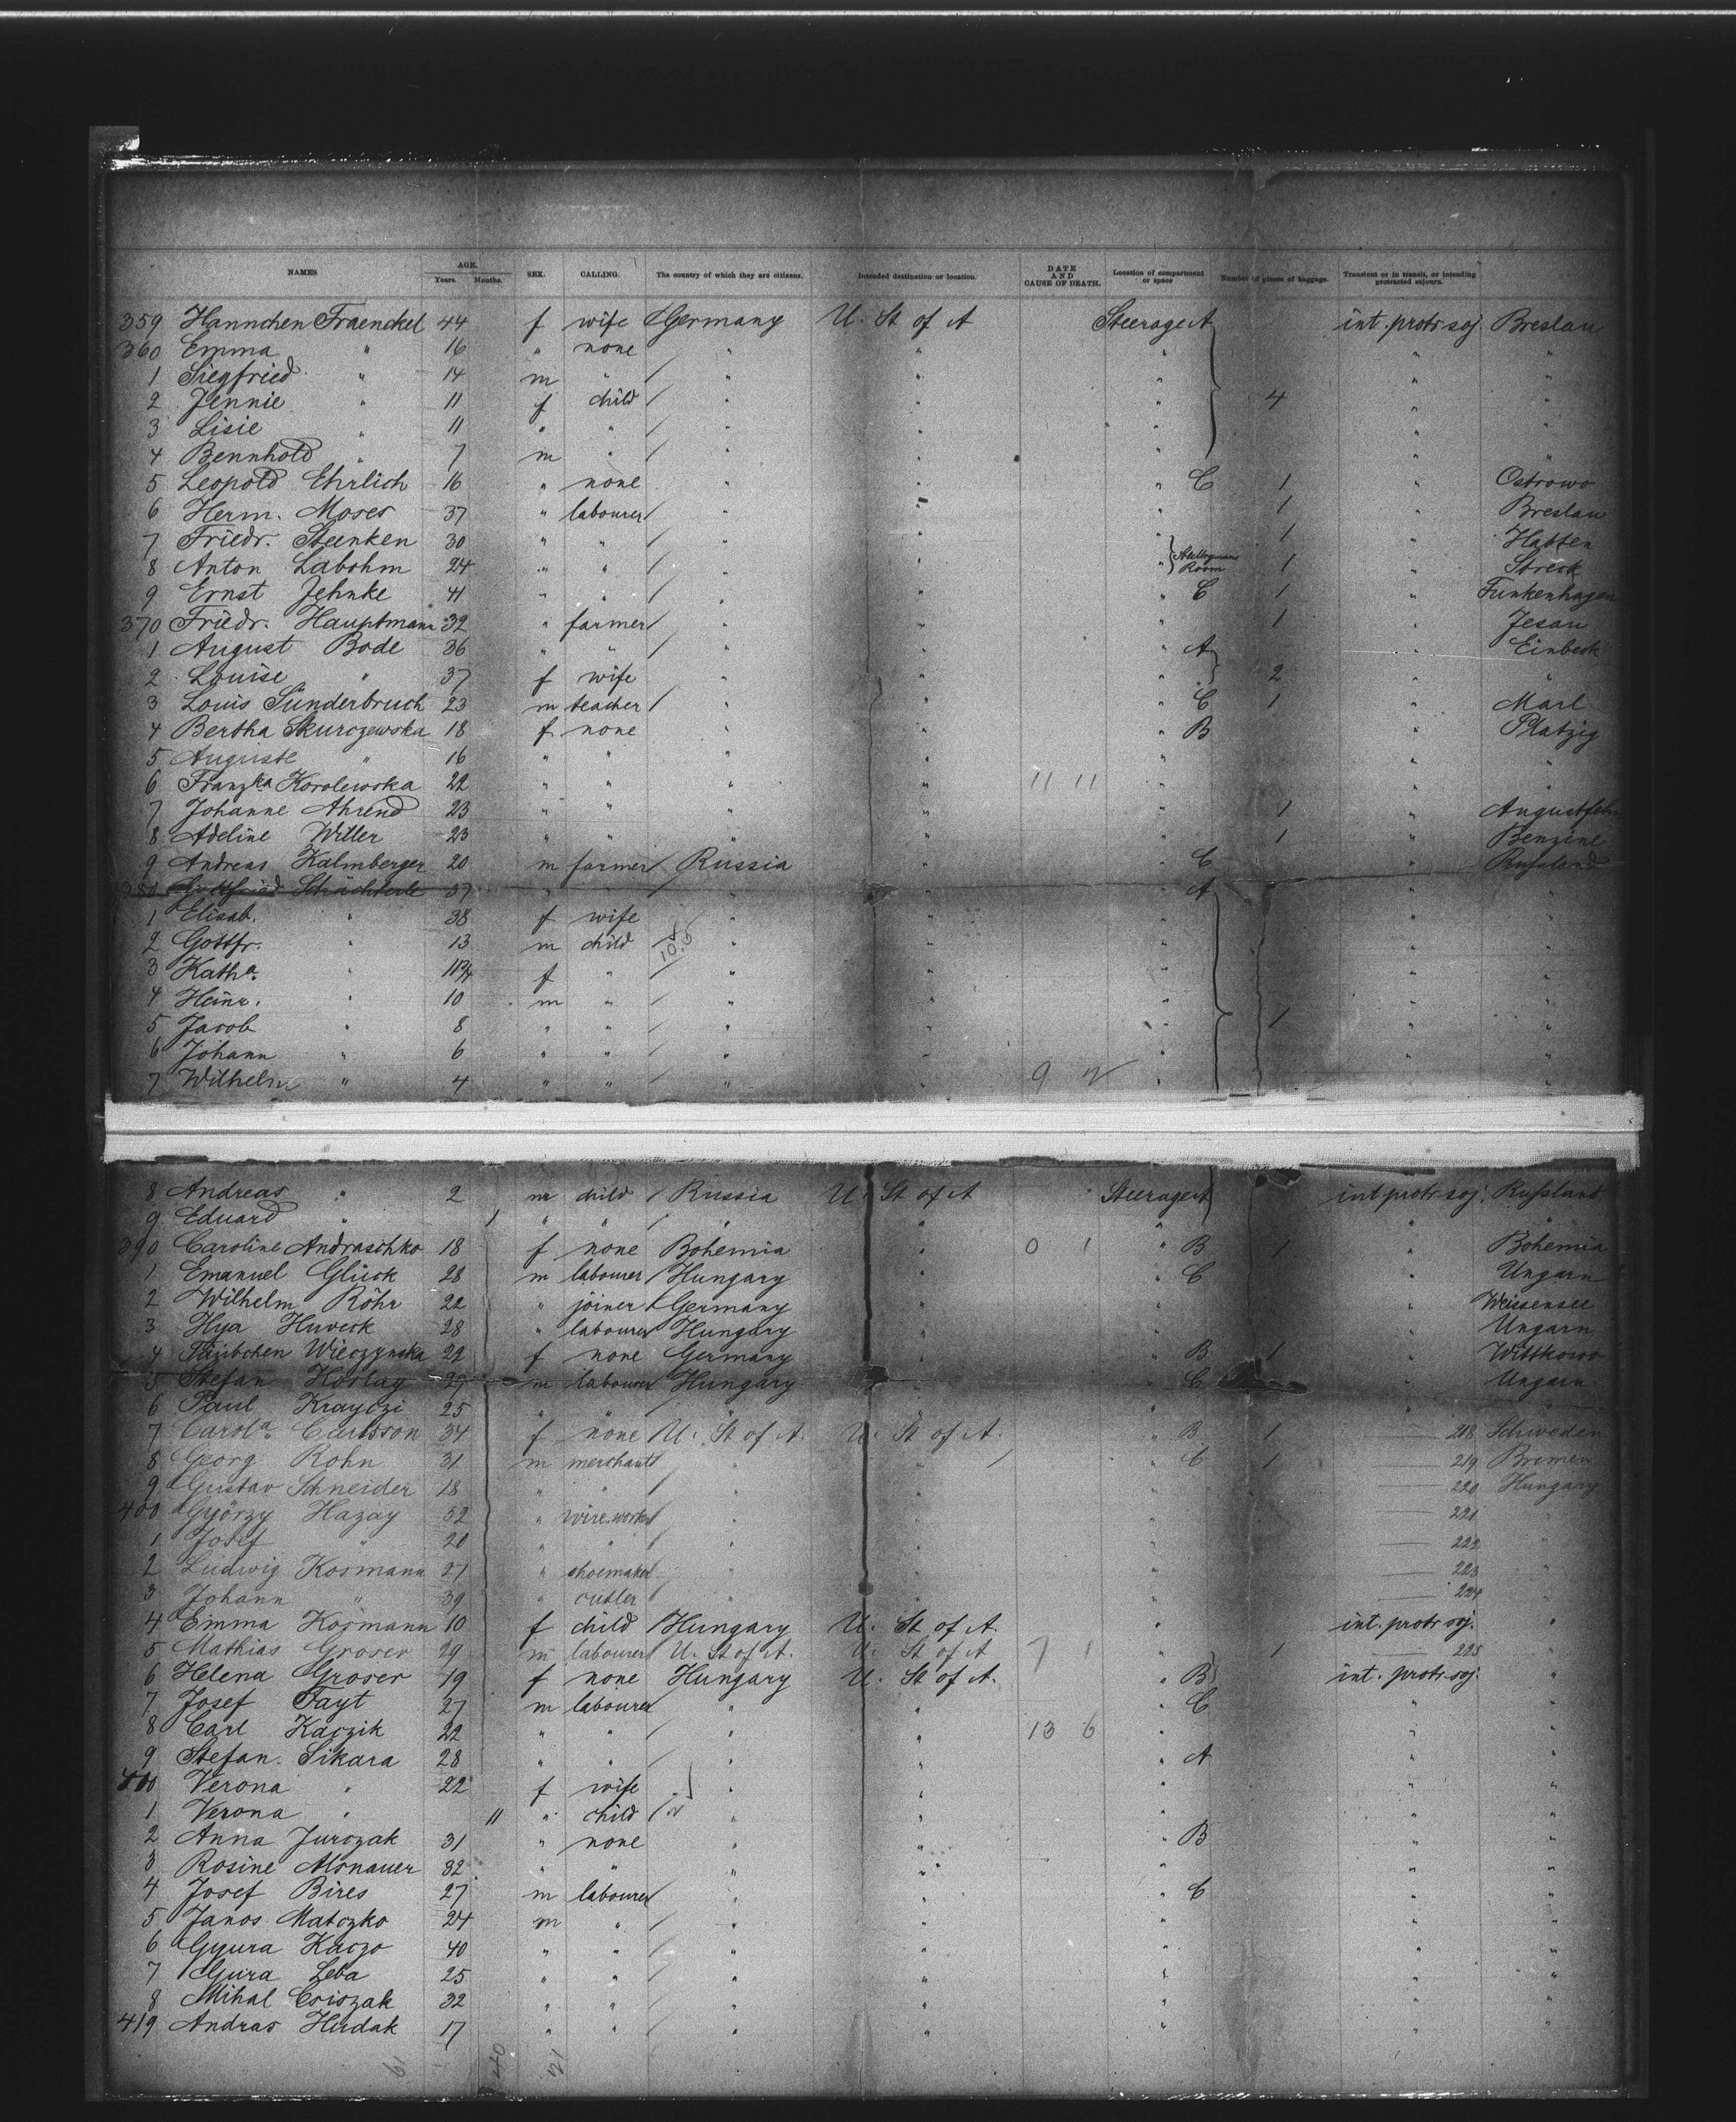 NAMES AGE. Years. Months. SEX. CALLING. The country of which they are citizens. Intended destination or location. DATE AND CAUSE OF DEATH. Location of compartment or space Number of pieces of baggage. Transient or in transit, or intending protracted sojourn.
359 Hannchen Fraenckel 44 f wife Germany U. St of A Steerage A int. protr soj. Breslau
360 Emma " 16 " none " " " " "
1 Siegfried " 14 m " / " " " " "
2 Jennie " 11 f child / " " " 4 " "
3 Lisie " 11 " " / " " " " "
4 Bennhold " 7 m " / " " " " "
5 Leopold Ehrlich 16 " none " " " C 1 " Ostrowo
6 Herm. Moses 37 " labourer / " " " 1 " Breslau
7 Friedr. Steenken 30 " " / " " " 1 " Hatten
8 Anton Labohm 24 " " / " " " Room 1 " Streek
9 Ernst Jehnke 41 " " / " " " C 1 " Funkenhagen
370 Friedr. Hauptmann 32 " farmer / " " " 1 " Jesau
1 August Bode 36 " " / " " " A " Einbeck
2 Louise " 37 f wife " " " 2 " "
3 Louis Sünderbruch 23 m teacher / " " " C 1 " Marl
4 Bertha Skurczewska 18 f none " " " B " Platzig
5 Auguste " 16 " " " " " " "
6 Franzka Korolewska 22 " " " " 11 11 " " "
7 Johanne Ahrend 23 " " " " " 1 " Augustfehn
8 Adeline Witter 23 " " " " " 1 " Benzine
9 Andreas Kalmberger 20 m farmer / Russia " " C " Russland
380 Gottfried 37 " " " " " A " "
1 Elisab. " 38 f wife " " " " "
2 Gottfr. " 13 m child / " " " " "
3 Katha. " 11 f " / " " " " "
4 Heinr. " 10 m " / " " " " "
5 Jacob " 8 " " / " " " 1 " "
6 Johann " 6 " " / " " " " "
7 Wilhelm " 4 " " / " " 9 " " "
8 Andreas " 2 m child / Russia U. St of A Steerage A int protr soj. Russland
9 Eduard " 1 " " / " " " " "
390 Caroline Andraschko 18 f none Bohemia " 0 1 " B 1 " Bohemia
1 Emanuel Glück 28 m labourer / Hungary " " C " Ungarn
2 Wilhelm Röhr 22 " joiner / Germany " " " Weissensee
3 Ilya Huveck 28 " labourer Hungary " " " Ungarn
4 Täubchen Wieczynska 22 f none Germany " " B 1 " Wittkowo
5 Stefan Korlag 27 m labourer Hungary " " C " Ungarn
6 Paul Krayczi 25 " " / " " " " "
7 Carola. Carlsson 34 f none U. St of A. U. St of A. " B 1 218 Schweden
8 Georg Rohn 31 m merchant / " " " C 1 219 Bremen
9 Gustav Schneider 18 " " / " " " 220 Hungary
400 Györzy Hazay 52 " wire-worker / " " " 221 "
1 Josef " 20 " " / " " " 222 "
2 Ludwig Kosmann 27 " shoemaker " " " 223 "
3 Johann " 39 " cutler / " " " 224 "
4 Emma Kosmann 10 f child / Hungary U. St of A. " int. protr soj. "
5 Mathias Groser 29 m labourer / U. St of A. U. St of A 7 1 " 1 225 "
6 Helena Groser 19 f none Hungary U. St of A. " B int. protr. soj. "
7 Josef Tayt 27 m labourer " " " C " "
8 Carl Kaczik 22 " " / " " 13 6 " " "
9 Stefan Sikara 28 " " / " " " A " "
410 Verona " 22 f wife " " " " "
1 Verona " 11 " child / " " " " "
2 Anna Jurczak 31 " none " " " B " "
3 Rosine Monauer 32 " " " " " " "
4 Josef Bires 27 m labourer / " " " C " "
5 Janos Matczko 24 m " / " " " " "
6 Gyura Kaczo 40 " " / " " " " "
7 Gyura Leba 25 " " / " " " " "
8 Mihal Csiszak 32 " " / " " " " "
419 Andras Hudak 17 " " / " " " " "
61 40 21